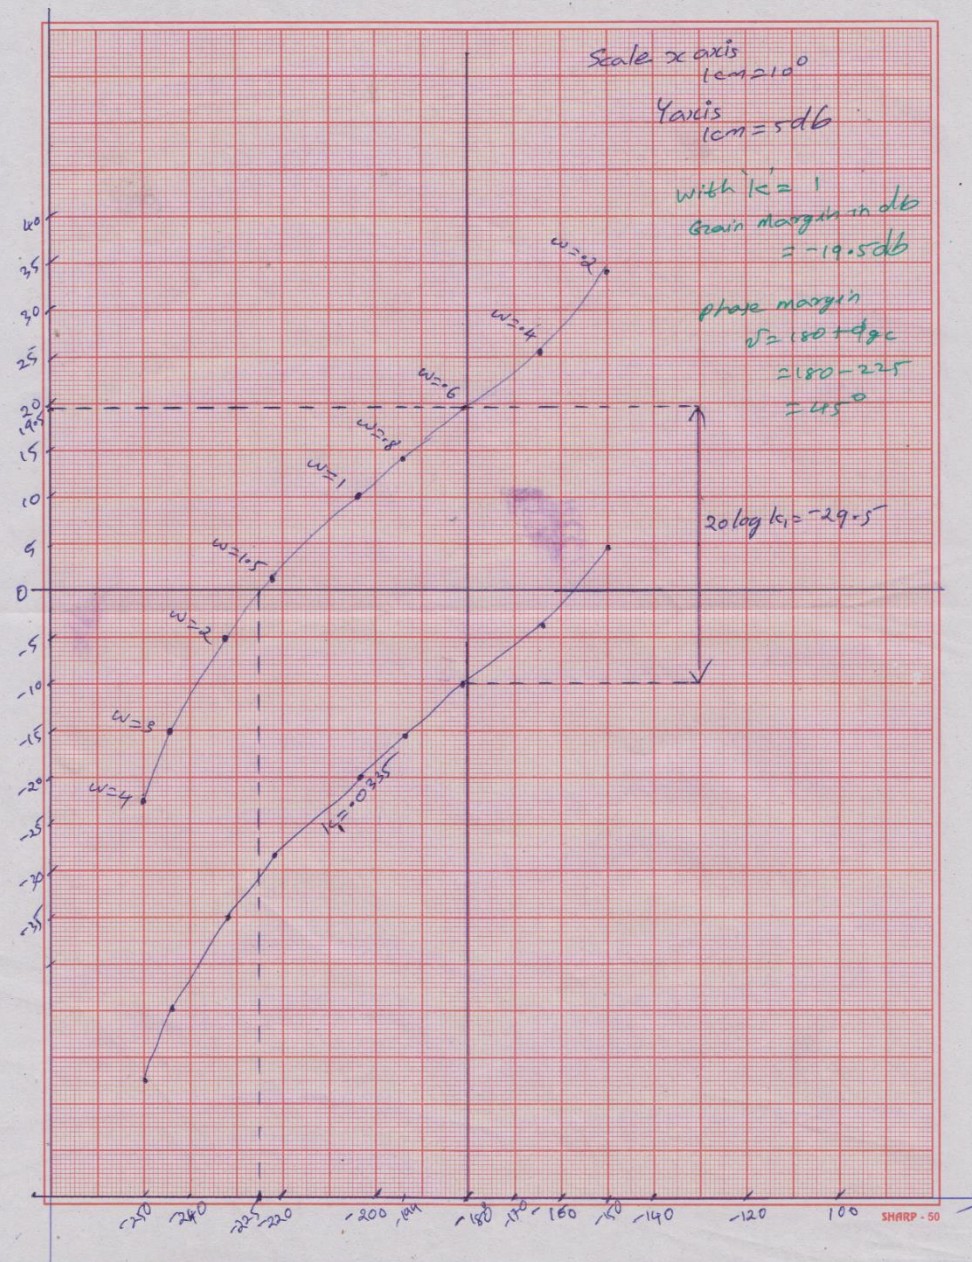 Scale x axis
1cm=10°
Yaxis
1cm=5db
with 'k' = 1
Gain Margin in db
= -19.5db
phase margin
γ=180+φgc
=180-225
=45°
40
35
30
25
20
19.5
15
10
5
0
-5
-10
-15
-20
-25
-30
-35
w=.2
w=.4
w=.6
w=.8
w=1
w=1.5
w=2
w=3
w=4
20log k₁=-29.5
k₁=.0335
-250 -240 -225 -220 -200 -180 -170 -160 -150 -140 -120 100
SHARP - 50